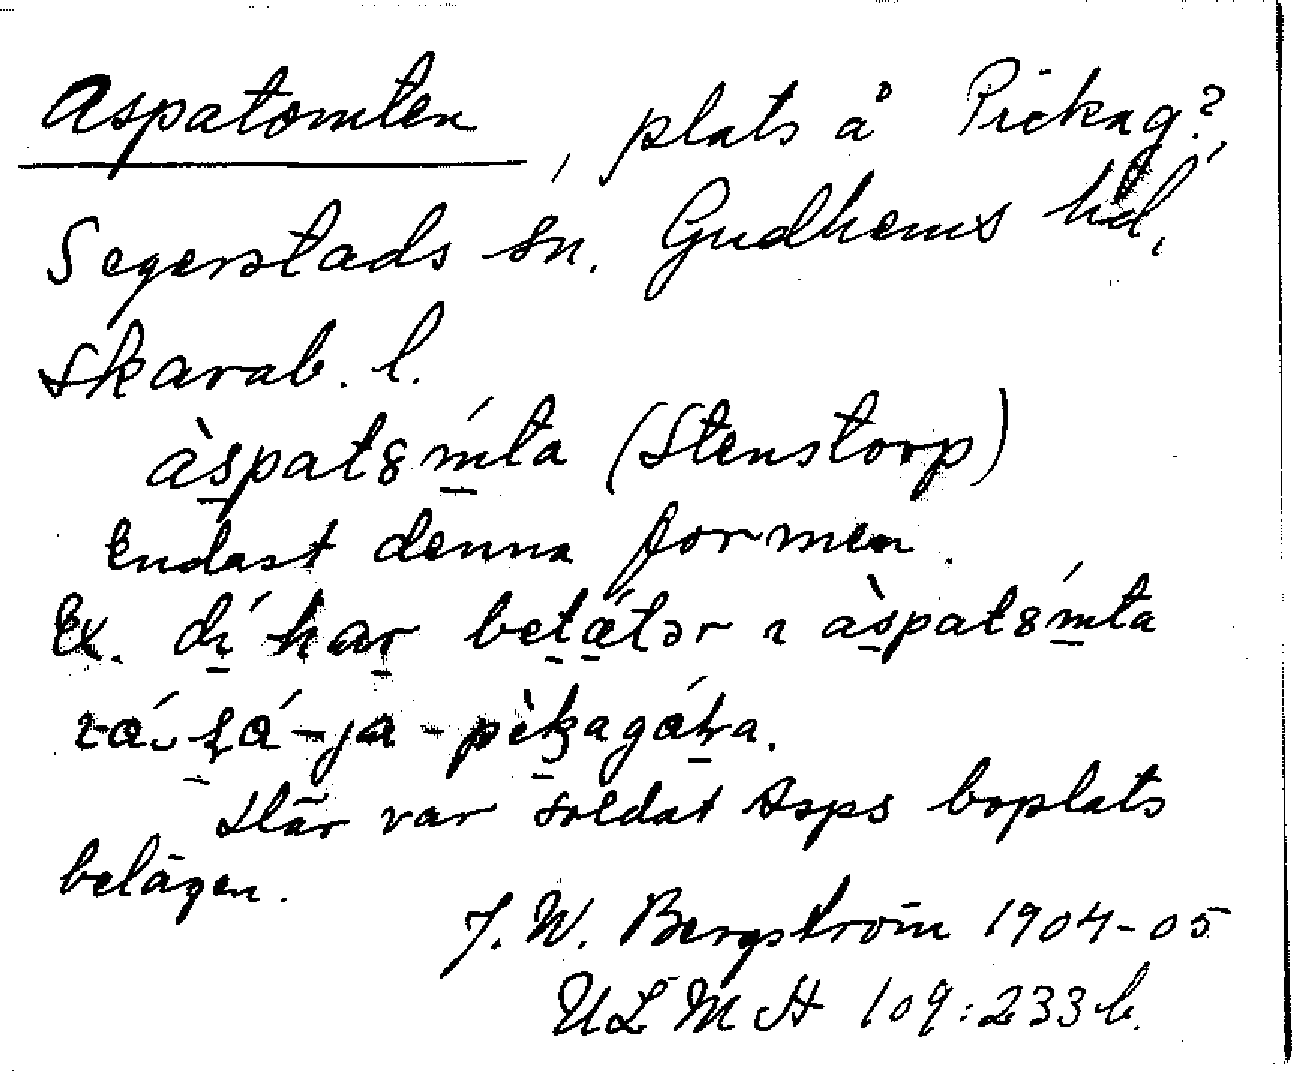 Aspatomten, plats å Pickag?,
Segerstads sn. Gudhems hd,
Skarab. l.
àspat8ḿta (Stenstorp)
Endast denna formen.
Ex. dí har betǽtər ı àspat8ḿta
-ja-pìkagáɽa.
Här var soldat Asps boplats
belägen.
J. W. Bergström 1904-05
ULMA 109:233 b.